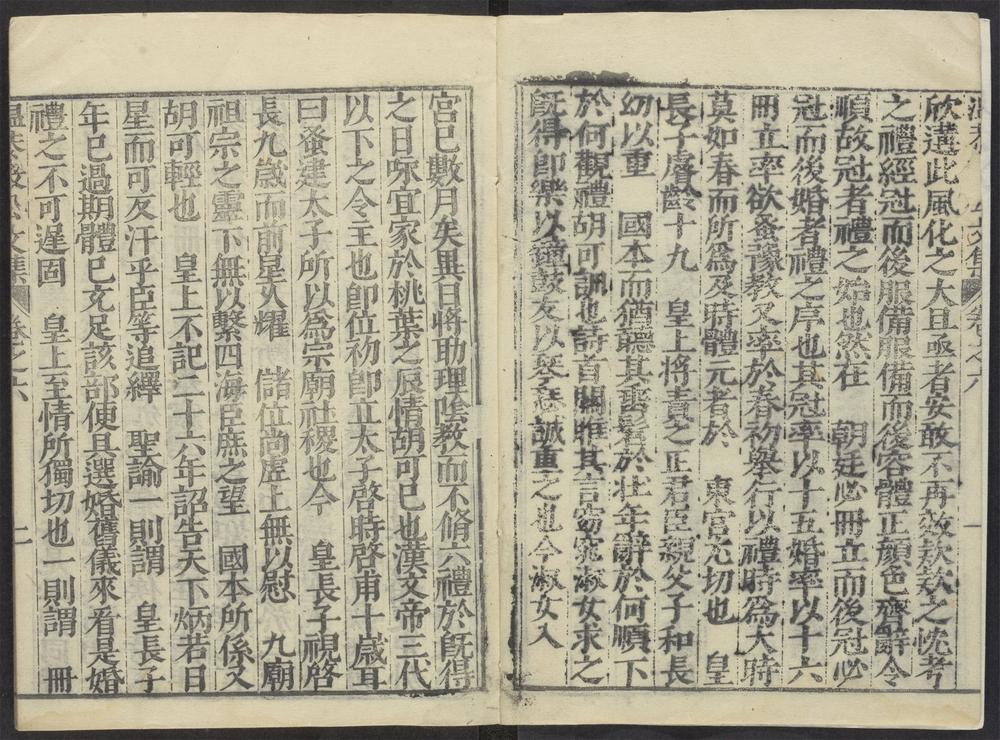 欣遘此風化之大且亟者安敢不再效款款之忱考
之禮經冠而後服備服備而後容體正顏色齊辭令
順故冠者禮之始也然在　朝廷必冊立而後冠必
冠而後婚者禮之序也其冠率以十五婚率以十六
冊立率欲蚤豫教又率於春初舉行以禮時爲大時
莫如春而所爲及時體元者於　東宮尤切也　皇
長子睿齡十九　皇上將責之正君臣親父子和長
幼以重　國本而猶聽其垂髫於壯年辭於何順下
於何觀禮胡可訓也詩首關雎其言窈窕淑女求之
旣得卽樂以鐘鼓友以琴瑟誠重之也今淑女入
宮已數月矣異日將助理陰教而不脩六禮於旣得
之日咏宜家於桃葉之辰情胡可已也漢文帝三代
以下之令主也卽位初卽立太子啓時啓甫十歲耳
曰蚤建太子所以爲宗廟社稷也今　皇長子視啓
長九歲而前星久耀　儲位尚虛上無以慰　九廟
祖宗之靈下無以繫四海臣庶之望　國本所係又
胡可輕也　皇上不記二十六年詔告天下炳若日
星而可反汗乎臣等追繹　聖諭一則謂　皇長子
年已過期體已充足該部便具選婚舊儀來看是婚
禮之不可遲固　皇上至情所獨切也一則謂　冊
卷之六